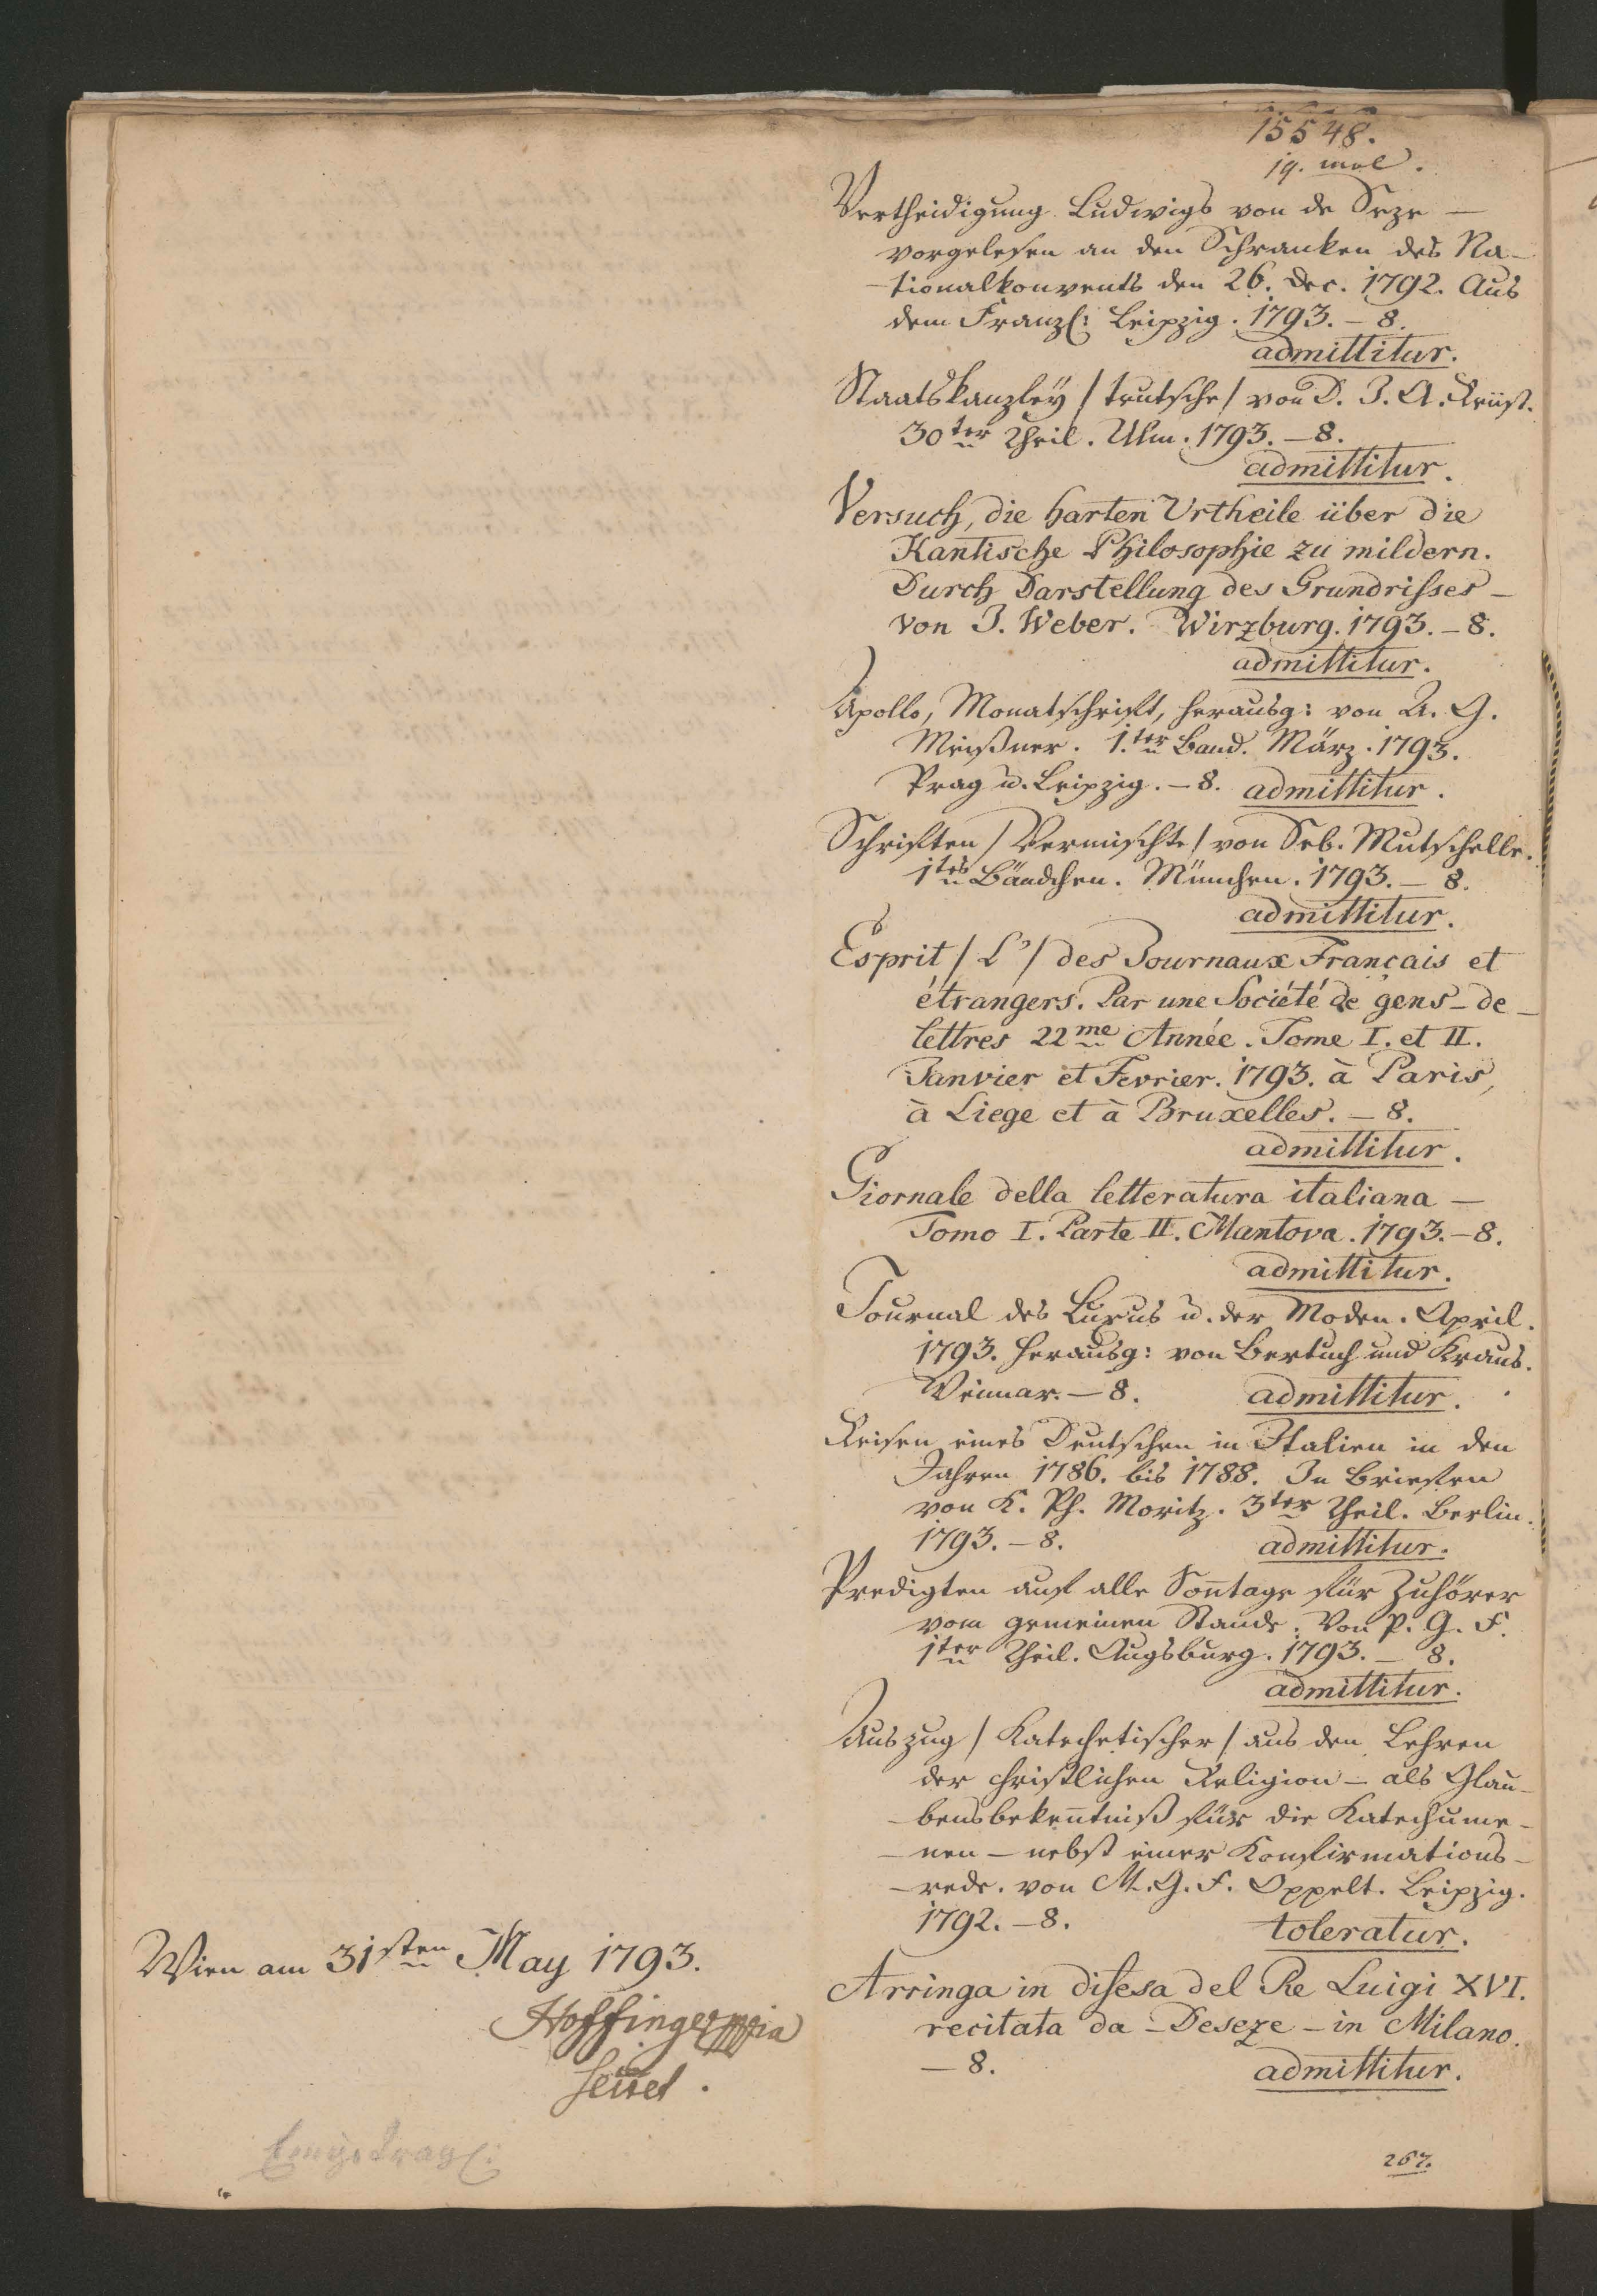 15548.
19. mal.
Vertheidigung Ludwigs von de Seze —
vorgelesen an den Schranken des Na-
-tionalkonvents den 26. Dec. 1792. Aus
dem Franzs: Leipzig. 1793. – 8.
admittitur.
Staatskanzley / teutsche / von D. J. A. Reüß.
30ter Theil. Ulm. 1793. – 8.
admittitur.
Versuch, die harten Urtheile über die
Kantische Philosophie zu mildern.
Durch Darstellung des Grundrisses –
von J. Weber. Wirzburg. 1793. – 8.
admittitur.
Apollo, Monatschrift, herausg: von A. G.
Meißner. 1.ter Band. März. 1793.
Prag u. Leipzig. – 8. admittitur.
Schriften / Vermischte / von Seb. Mutschelle.
1tes Bändchen. München. 1793. – 8.
admittitur.
Esprit / L' / des Journaux Français et
étrangers. Par une Société de gens – de –
lettres 22me Année. Tome I. et II.
Janvier et Fevrier. 1793. à Paris,
à Liege et à Bruxelles. – 8.
admittitur.
Giornale della letteratura italiana –
Tomo I. Parte II. Mantova. 1793. – 8.
admittitur.
Journal des Luxus u. der Moden. April.
1793. herausg: von Bertuch und Kraus.
Weimar. – 8. admittitur.
Reisen eines Deutschen in Italien in den
Jahren 1786. bis 1788. In Briefen
von K. Ph. Moritz. 3ter Theil. Berlin.
1793. – 8. admittitur.
Predigten auf alle Son̄tage für Zuhörer
vom gemeinen Stande. Von P. G. F.
1ter Theil. Augsburg. 1793. – 8.
admittitur.
Auszug / Katechetischer / aus den Lehren
der christlichen Religion – als Glau-
-bensbeken̄tniß für die Katechume-
-nen – nebst einer Konfirmations-
-rede. von M. G. F. Oppelt. Leipzig.
1792. – 8. toleratur.
Arringa in difesa del Re Luigi XVI.
recitata da – Deseze – in Milano.
– 8. admittitur.
267.
Wien am 31sten May 1793.
Hoffinger mpia